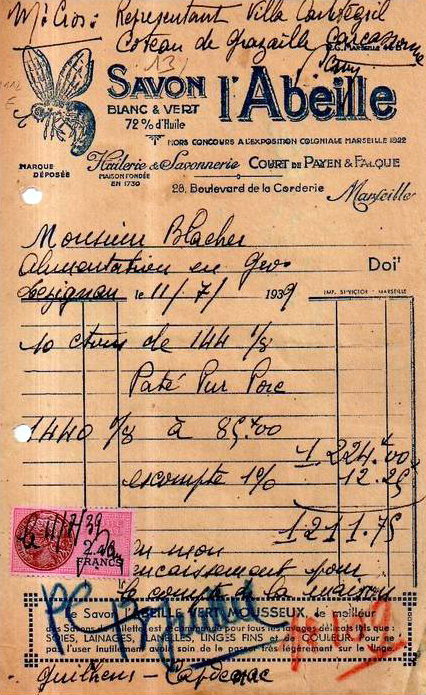 Mr Cros: Representant Villa
Coteau de Grazaille Carcassonne
R.C. MARSEILLE
SAVON l'Abeille
BLANC & VERT
72 % d'Huile
HORS CONCOURS A L'EXPOSITION COLONIALE MARSEILLE 1922
MARQUE DÉPOSÉE
Huilerie & Savonnerie COURT DE PAYEN & FALQUE
MAISON FONDÉE EN 1730
28, Boulevard de la Corderie Marseille
Monsieur Blacher
Alimentation en Gros Doit
Lezignan le 11/7/ 1939
IMP. ST-VICTOR - MARSEILLE
10 ctons de 144 1/8
Paté Pur Porc
1440 1/8 à 85.00
1 224.00
escompte 1% 12.25
1 211.75
le 11/7/39
2 FRANCS
encaissement pour
le compte de la maison
le Savon L'ABEILLE VERT MOUSSEUX, le meilleur
des Savons de Toilette est recommandé pour tous les lavages délicats tels que :
SOIES, LAINAGES, FLANELLES, LINGES FINS et de COULEUR. Pour ne
pas l'user inutilement avoir soin de le passer très légèrement sur le linge.